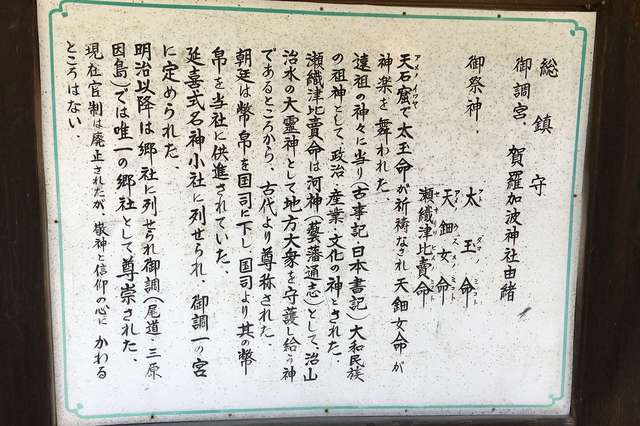 総鎮守
御調宮、賀羅加波神社由緒
御祭神、
太玉命
天鈿女命
瀬織津比賣命
天石窟で太玉命が祈祷なされ天鈿女命が
神楽を舞われた。
遠祖の神々に当り(古事記日本書記)大和民族
の祖神として、政治、産業、文化の神とされた。
瀬織津比賣命は河神(藝藩通志)として、治山
治水の大霊神として地方大衆を守護し給う神
であるところから、古代より尊称された。
朝廷は幣帛を国司に下し、国司より其の幣
帛を当社に供進されていた。
延喜式名神小社に列せられ、御調一の宮
に定められた。
明治以降は郷社に列せられ御調(尾道、三原
因島)では唯一の郷社として尊崇された、
現在官制は廃止されたが、敬神と信仰の心に かわる
ところはない。